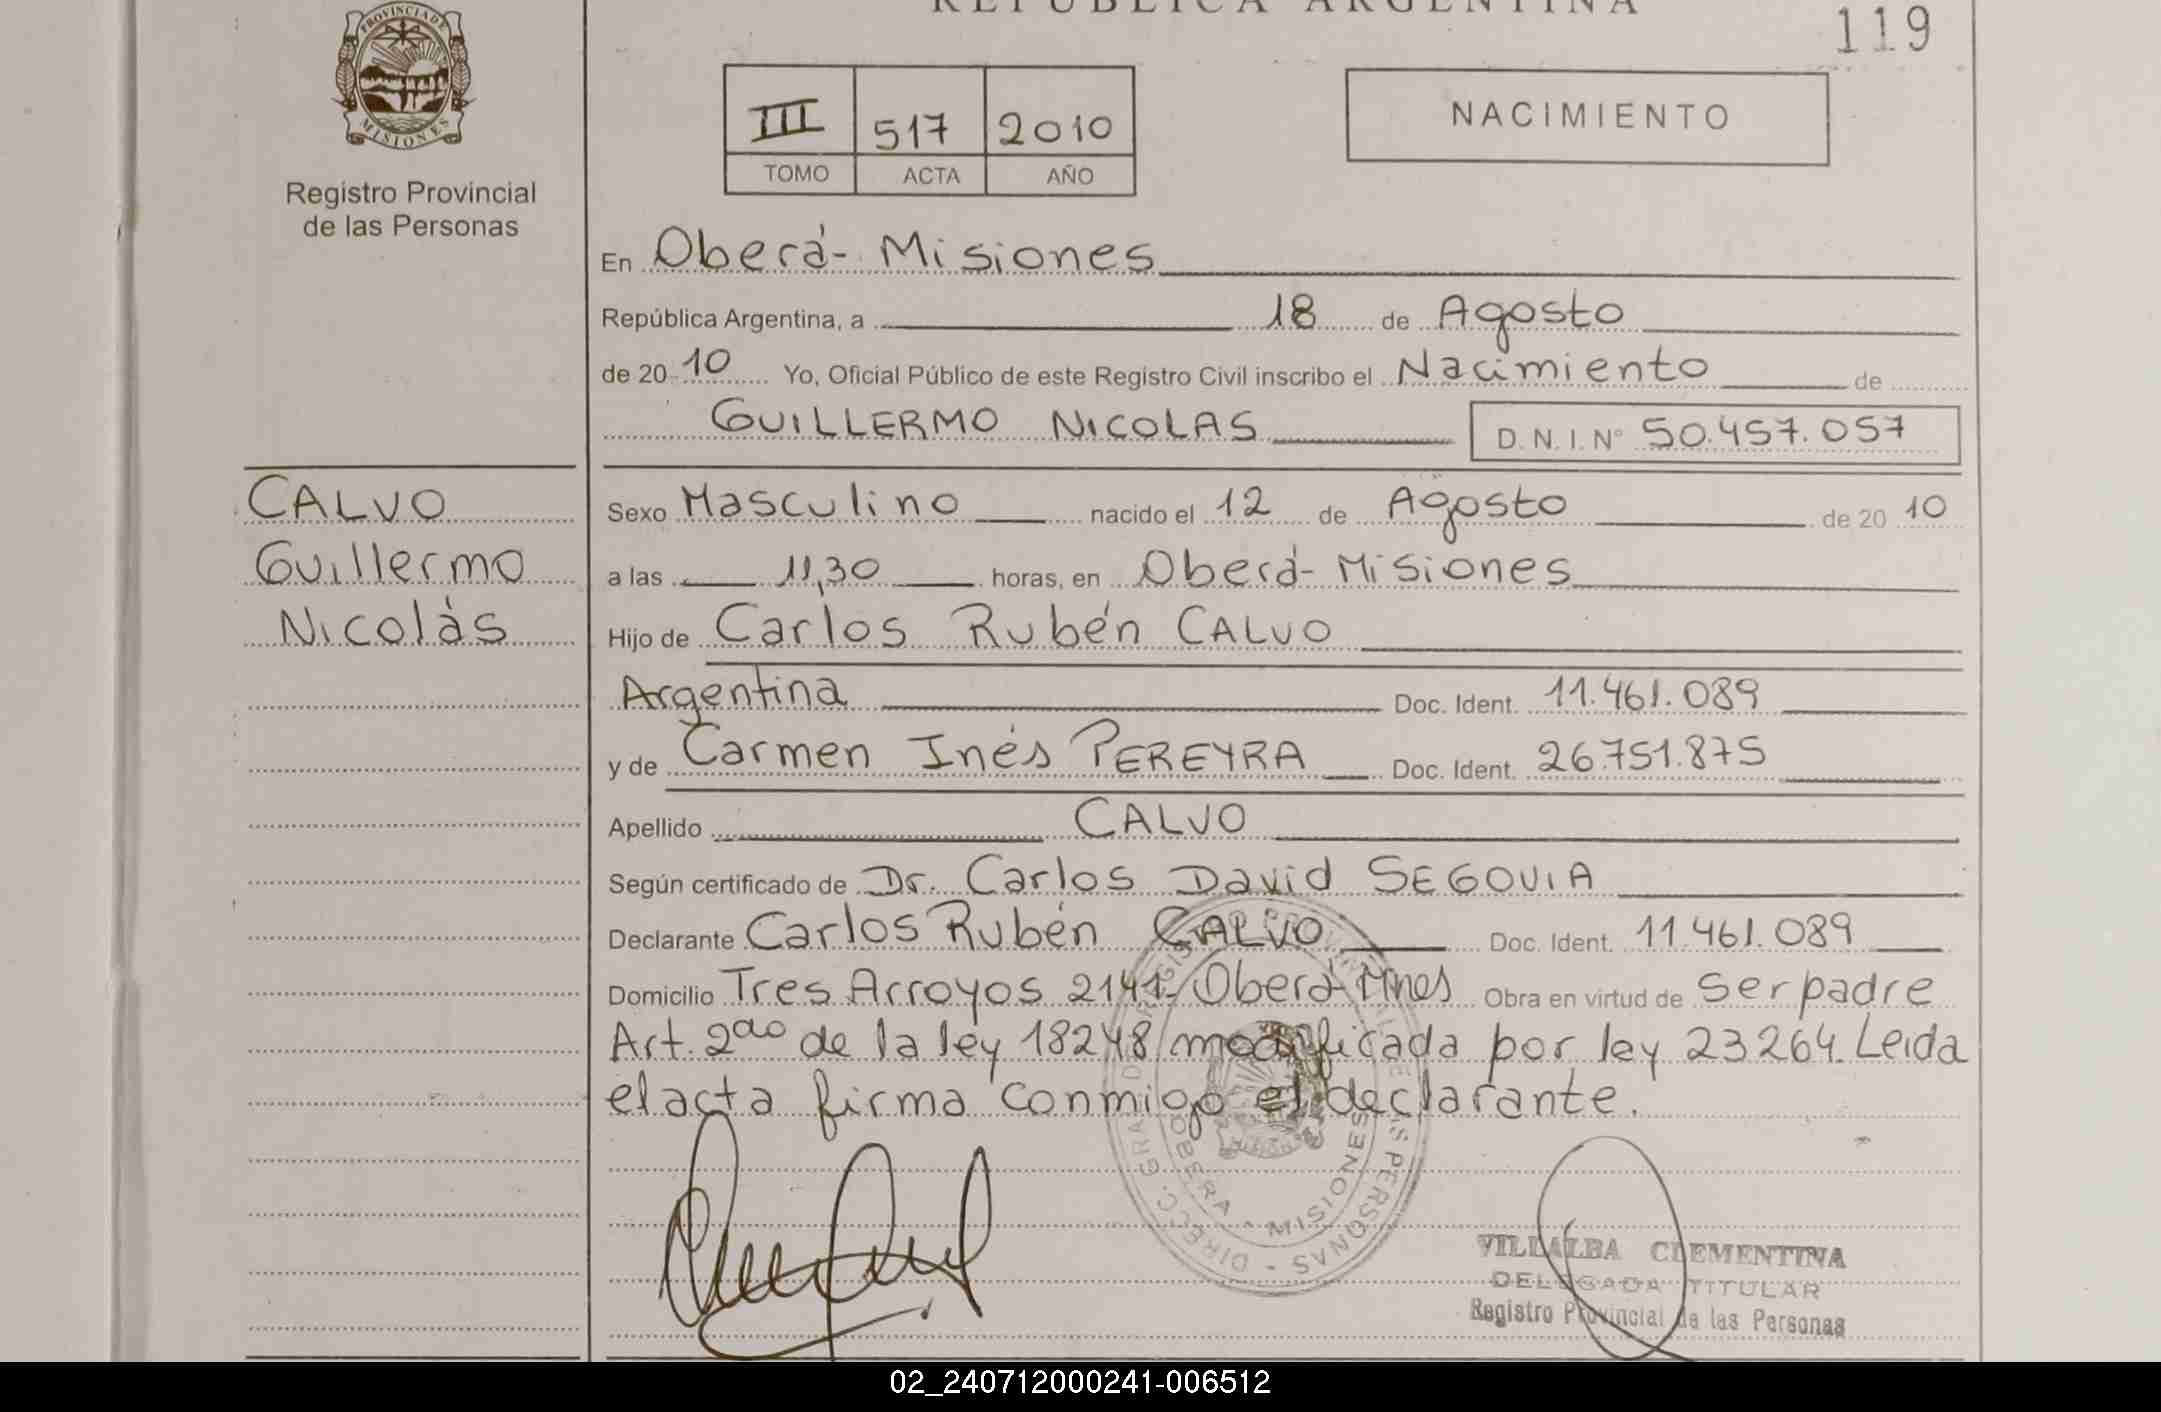 REPUBLICA ARGENTINA
119
PROVINCIA DE
MISIONES
Registro Provincial
de las Personas
III 517 2010
TOMO ACTA AÑO
NACIMIENTO
En Oberá- Misiones
República Argentina, a 18 de Agosto
de 20 10 Yo, Oficial Público de este Registro Civil inscribo el Nacimiento de
GUILLERMO NICOLAS D.N.I. Nº 50.457.057
CALVO
Guillermo
Nicolás
Sexo Masculino nacido el 12 de Agosto de 20 10
a las 11,30 horas, en Oberá- Misiones
Hijo de Carlos Rubén CALVO
Argentina Doc. Ident. 11.461.089
y de Carmen Inés PEREYRA Doc. Ident. 26.751.875
Apellido CALVO
Según certificado de Dr. Carlos David SEGOVIA
Declarante Carlos Rubén CALVO Doc. Ident. 11.461.089
Domicilio Tres Arroyos 2141- Oberá Mnes Obra en virtud de ser padre
Art. 2do de la ley 18248 modificada por ley 23264. Leida
el acta firma conmigo el declarante.
OBERA - MISIONES
VILLALBA CLEMENTINA
DELEGADA TITULAR
Registro Provincial de las Personas
02_240712000241-006512